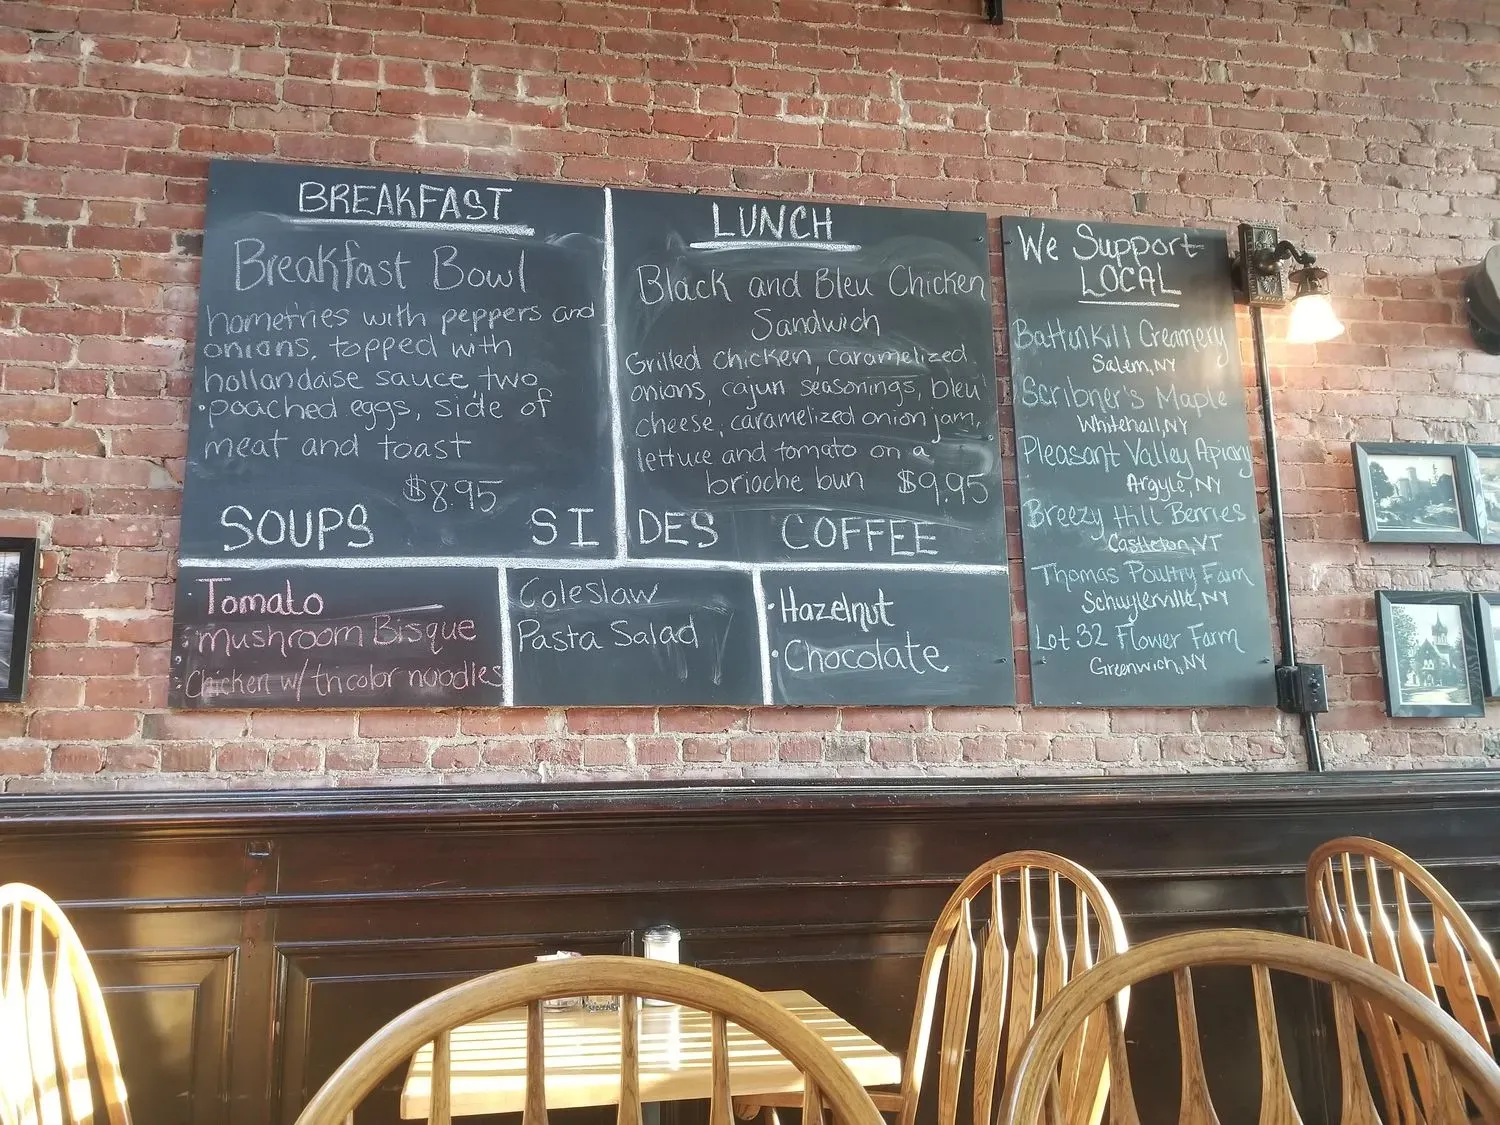 BREAKFAST
Breakfast Bowl
homefries with peppers and
onions, topped with
hollandaise sauce, two
poached eggs, side of
meat and toast
$8.95
LUNCH
Black and Bleu Chicken
Sandwich
Grilled chicken, caramelized
onions, cajun seasonings, bleu
cheese, caramelized onion jam,
lettuce and tomato on a
brioche bun $9.95
SOUPS
Tomato
mushroom Bisque
Chicken w/ tricolor noodles
SIDES
Coleslaw
Pasta Salad
COFFEE
Hazelnut
Chocolate
We Support
LOCAL
Battenkill Creamery
Salem, NY
Scribner's Maple
Whitehall, NY
Pleasant Valley Apiary
Argyle, NY
Breezy Hill Berries
Castleton, VT
Thomas Poultry Farm
Schuylerville, NY
Lot 32 Flower Farm
Greenwich, NY